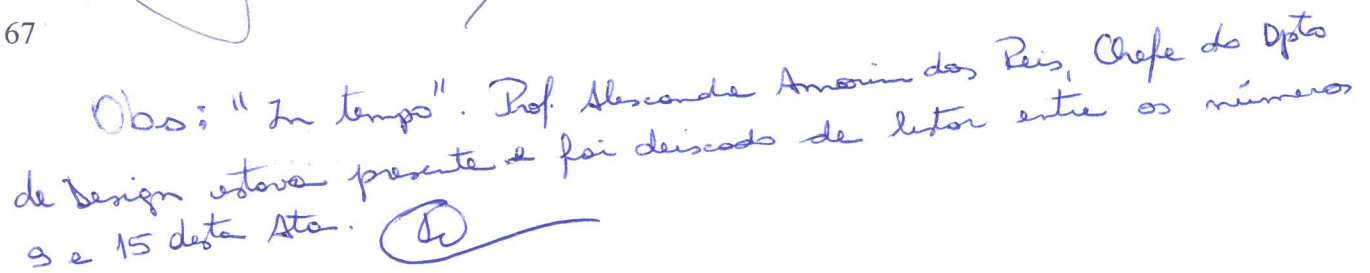 67
Obs: "In tempo". Prof. Alexandre Amorim dos Reis, Chefe do Dpto
de Design estava presente e foi deixado de listar entre os números
9 e 15 desta Ata.